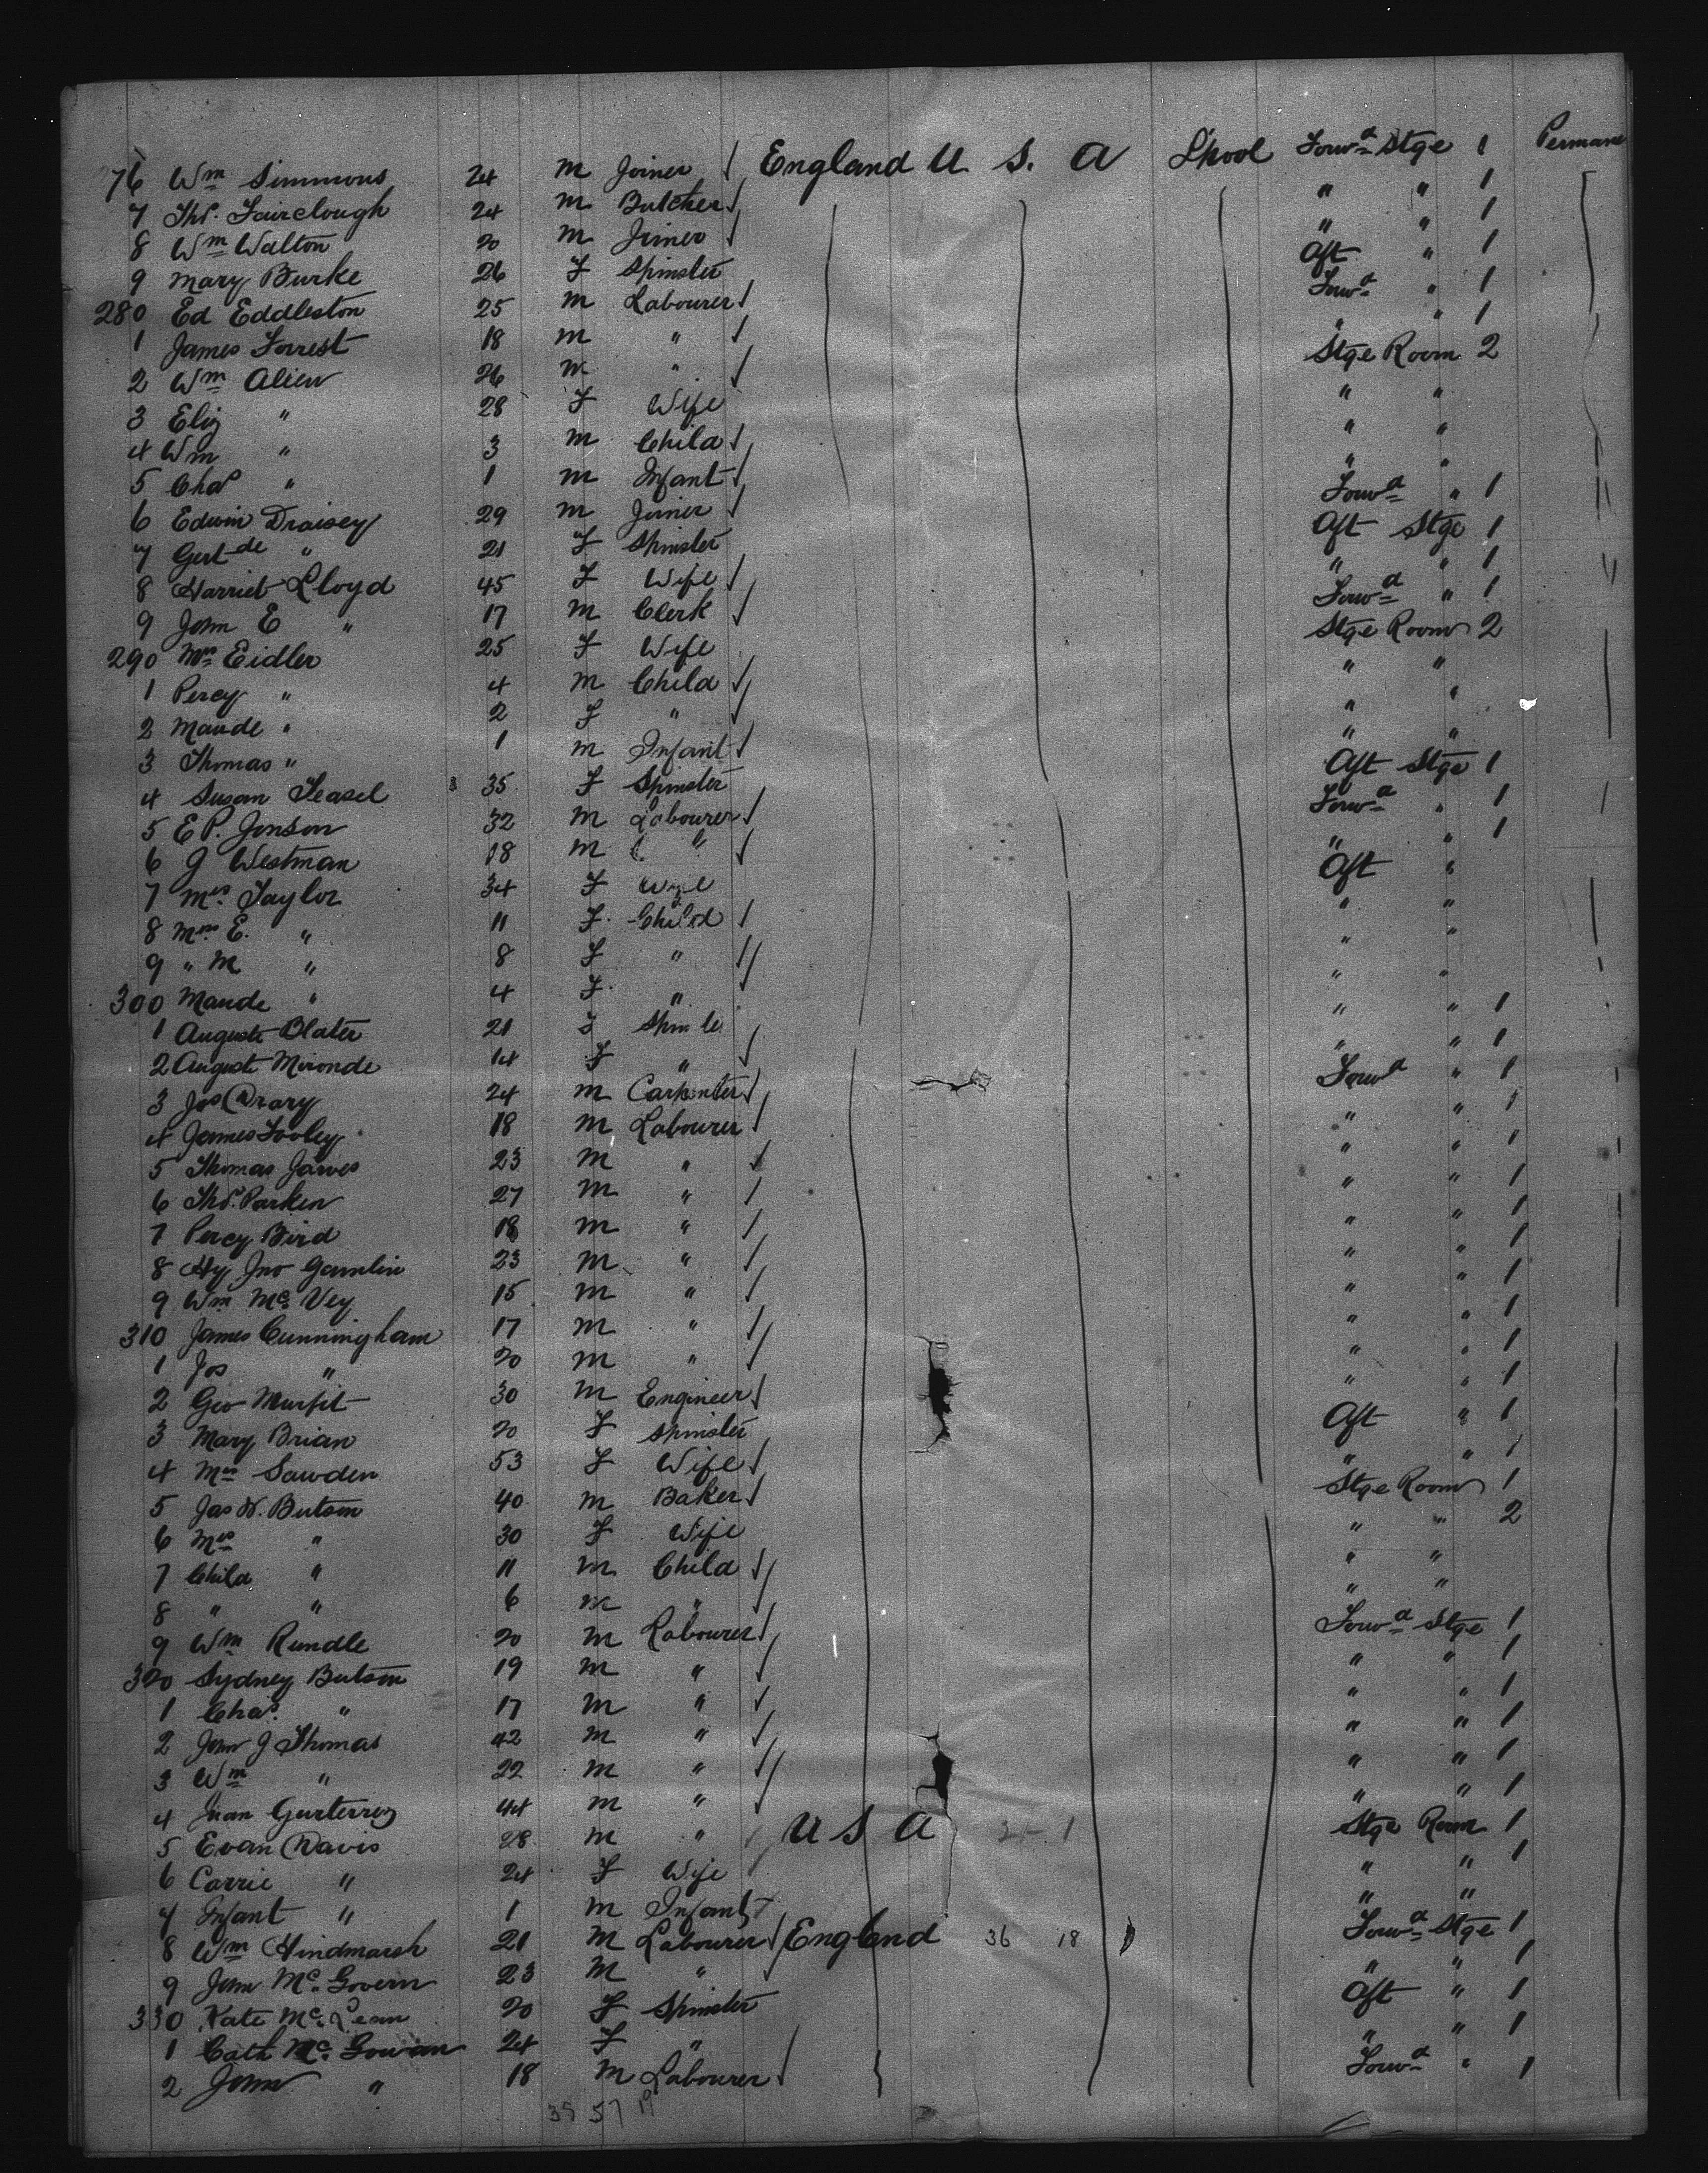 76 Wm Simmons 24 m Joiner England U. S. A L'pool Forwd Stge 1 Permane
7 Thos. Fairclough 24 m Butcher " " 1
8 Wm Walton 20 m Joiner " " 1
9 Mary Burke 26 F Spinster Aft " 1
280 Ed Eddleston 25 m Labourer Forwd " 1
1 James Forrest 18 m " " " 1
2 Wm Alien 26 m " Stge Room 2
3 Eliz " 28 F Wife " "
4 Wm " 3 m Child " "
5 Chas " 1 m Infant " "
6 Edwin Draisey 29 m Joiner Forwd " 1
7 Gertde " 21 F Spinster Aft Stge 1
8 Harriet Lloyd 45 F Wife " " 1
9 John E " 17 m Clerk Forwd " 1
290 Mrs Eidler 25 F Wife Stge Room 2
1 Percy " 4 m Child " "
2 Maude " 2 F " " "
3 Thomas " 1 m Infant " "
4 Susan Teasel 35 F Spinster Aft Stge 1
5 E P. Jonson 32 m Labourer Forwd " 1
6 J Westman 18 m " " " 1
7 Mrs. Taylor 34 F Wife Aft "
8 E. " 11 F. Child " "
9 " M " 8 F " " "
300 Maude " 4 F. " " "
1 Auguste Blater 21 F Spin te " " 1
2 Auguste Mironde 14 F " " " 1
3 Jos Drary 24 m Carpenter Forwd " 1
4 James Tooley 18 m Labourer " " 1
5 Thomas Jarves 23 m " " " 1
6 Thos. Parkin 27 m " " " 1
7 Percy Bird 18 m " " " 1
8 Hy Jno Gamlin 23 m " " " 1
9 Wm Mc Vey 15 m " " " 1
310 James Cunningham 17 m " " " 1
1 Jos " 20 m " " " 1
2 Geo Murfit 30 m Engineer " " 1
3 Mary Brian 20 F Spinster Aft " 1
4 Mrs Sawden 53 F Wife " " 1
5 Jas H. Butson 40 m Baker Stge Room 1
6 Mrs " 30 F Wife " " 2
7 Child " 11 m Child " "
8 " " 6 m " " "
9 Wm Rundle 20 m Labourer Forwd Stge 1
320 Sydney Butson 19 m " " " 1
1 Chas. " 17 m " " " 1
2 John J Thomas 42 m " " " 1
3 Wm " 22 m " " " 1
4 Juan Gurterrez 44 m " " " 1
5 Evan Davis 28 m " U S A Stge Room 1
6 Carrie " 24 F Wife " " 1
7 Infant " 1 m Infant " "
8 Wm Hindmarsh 21 m Labourer England 36 18 Forwd Stge 1
9 John Mc. Govern 23 m " " " 1
330 Kate Mc. 20 F Spinster Aft " 1
1 Cath Mc. Gowan 24 F " " " 1
2 John " 18 m Labourer Forwd " 1
35 57 19